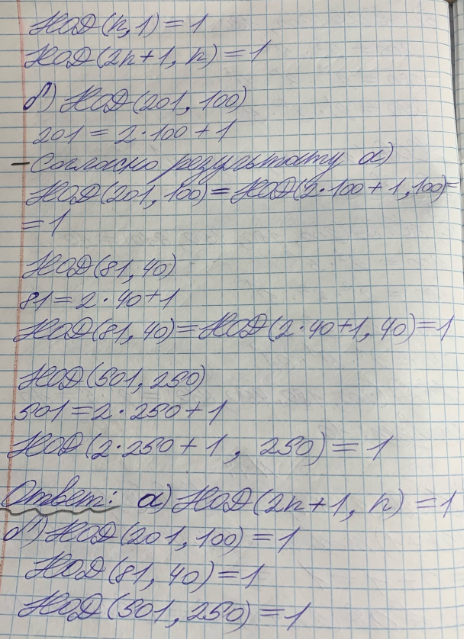 НОД(n,1)=1
НОД(2n+1, n)=1
б) НОД(201,100)
201=2·100+1
– Согласно результату а)
НОД(201,100)=НОД(2·100+1,100)=
=1
НОД(81,40)
81=2·40+1
НОД(81,40)=НОД(2·40+1,40)=1
НОД(501,250)
501=2·250+1
НОД(2·250+1, 250)=1
Ответ: а) НОД(2n+1, n)=1
б) НОД(201,100)=1
НОД(81,40)=1
НОД(501,250)=1